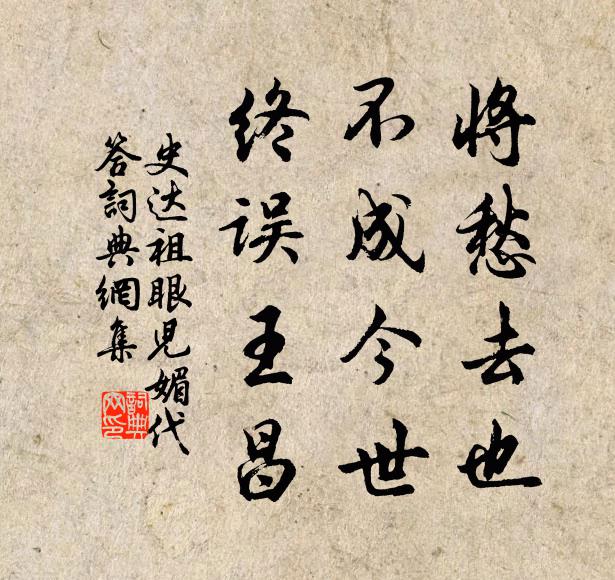 将愁去也
不成今世
终误王昌
史达祖眼儿媚代
答詞典網集
詞典網印